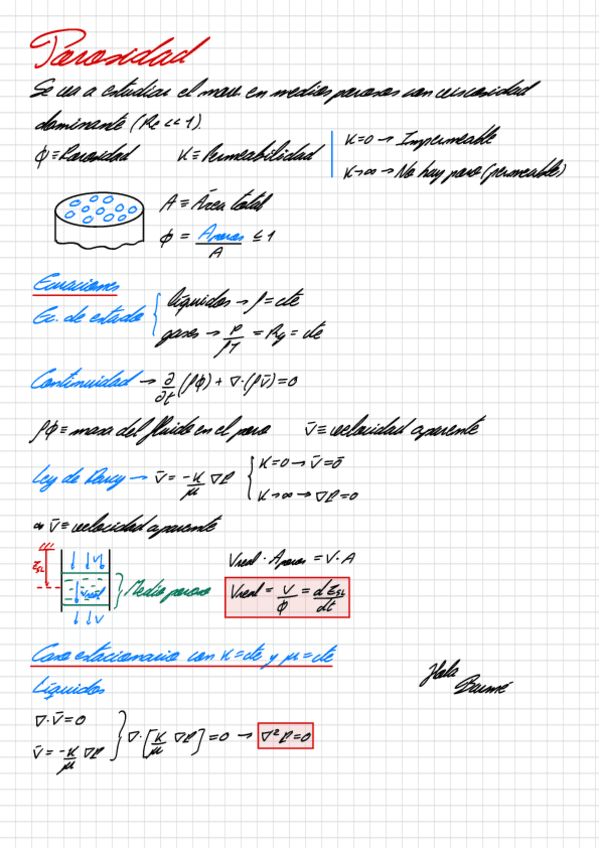 Porosidad
Se va a estudiar el mov. en medios porosos con viscosidad
dominante (Re << 1).
ϕ ≡ Porosidad K ≡ Permeabilidad
K=0 → Impermeable
K→∞ → No hay poro (permeable)
A ≡ Área total
ϕ = Aporos / A ≤ 1
Ecuaciones
Ec. de estado { líquidos → ρ = cte
gases → P / ρT = Rg = cte
Continuidad → ∂/∂t (ρϕ) + ∇·(ρv̄) = 0
ρϕ ≡ masa del fluido en el poro v̄ ≡ velocidad aparente
Ley de Darcy → v̄ = -K/μ ∇P { K=0 → v̄=0̄
K→∞ → ∇P=0
v̄ ≡ velocidad aparente
↓ ↓ v
↓ vreal
↓ ↓ v
Medio poroso
Vreal · Aporos = V · A
Vreal = V/ϕ = dz/dt
Caso estacionario con K=cte y μ=cte
Líquidos
Hola
∇·v̄=0
v̄ = -K/μ ∇P
} ∇·[K/μ ∇P] = 0 → ∇²P=0